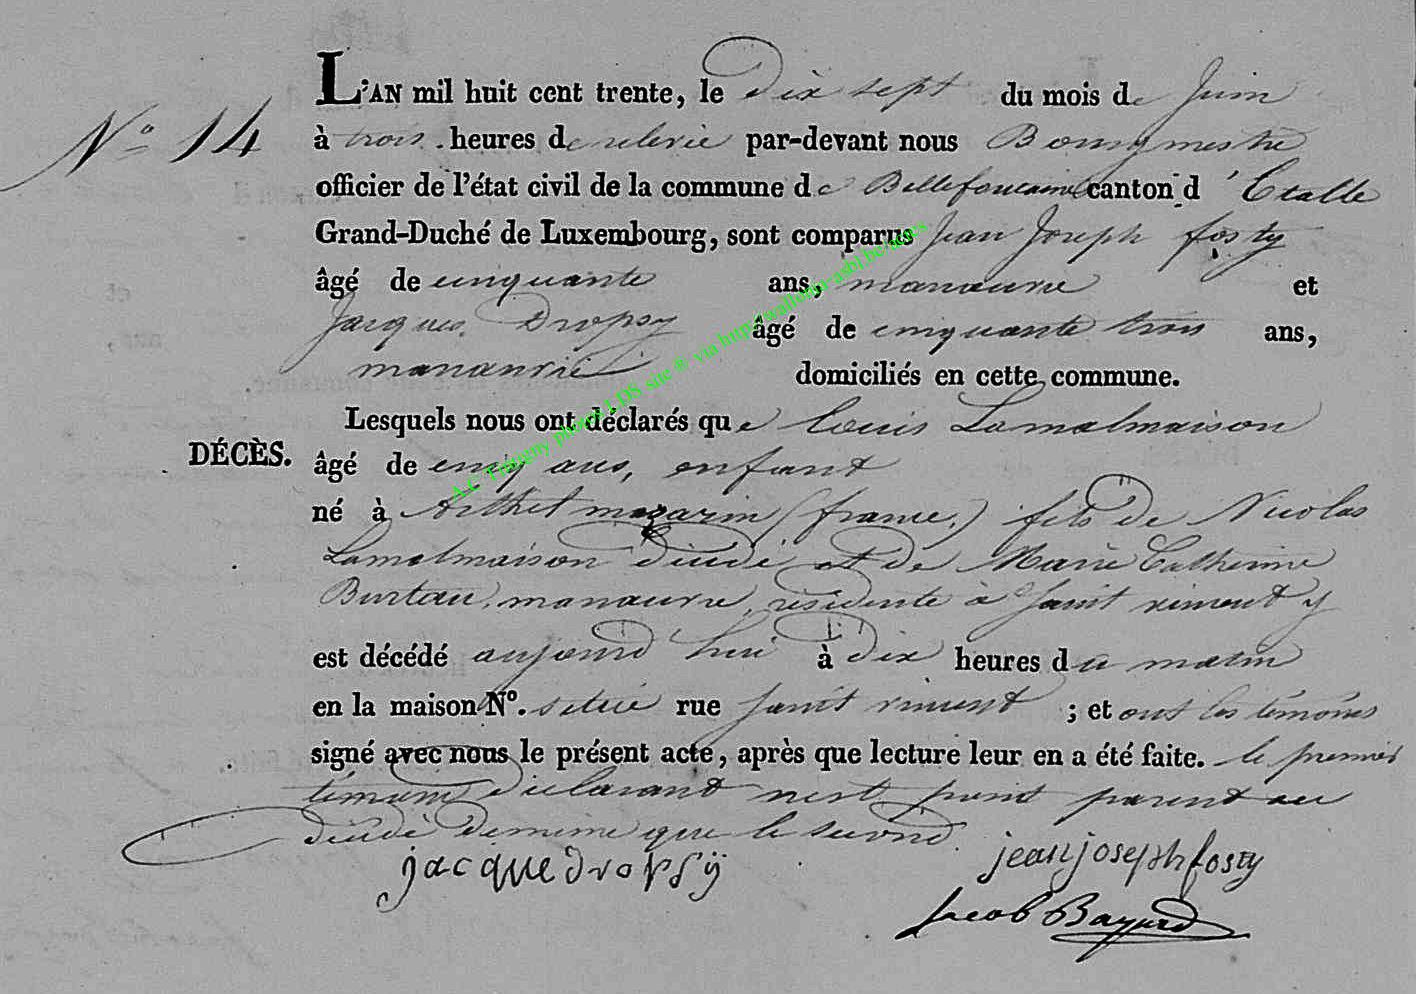 L'AN mil huit cent trente, le dix sept du mois de Juin
N° 14
à trois heures de relevée par-devant nous Bourgmestre
officier de l'état civil de la commune de Bellefontaine canton d'Etalle
Grand-Duché de Luxembourg, sont comparus Jean Joseph fosty
âgé de cinquante ans, manœuvre et
Jacques Dropsy âgé de cinquante trois ans,
manœuvre domiciliés en cette commune.
Lesquels nous ont déclarés que Louis Lamalmaison
DÉCÈS.
âgé de cinq ans, enfant
né à mazarin (france) fils de Nicolas
Lamalmaison décédé et de Marie Catherine
Burtau, manœuvre, résidente à Saint vincent y
est décédé aujourd hui à dix heures du matin
en la maison N°. située rue Saint vincent ; et ont les témoins
signé avec nous le présent acte, après que lecture leur en a été faite. le premier
témoin déclarant n'est point parent au
décédé de même que le second.
jacque dropsÿ
jean joseph fosty
Jacob Bayard
A.C Tintigny photos LDS site ® via http://wallonia-asbl.be/actes